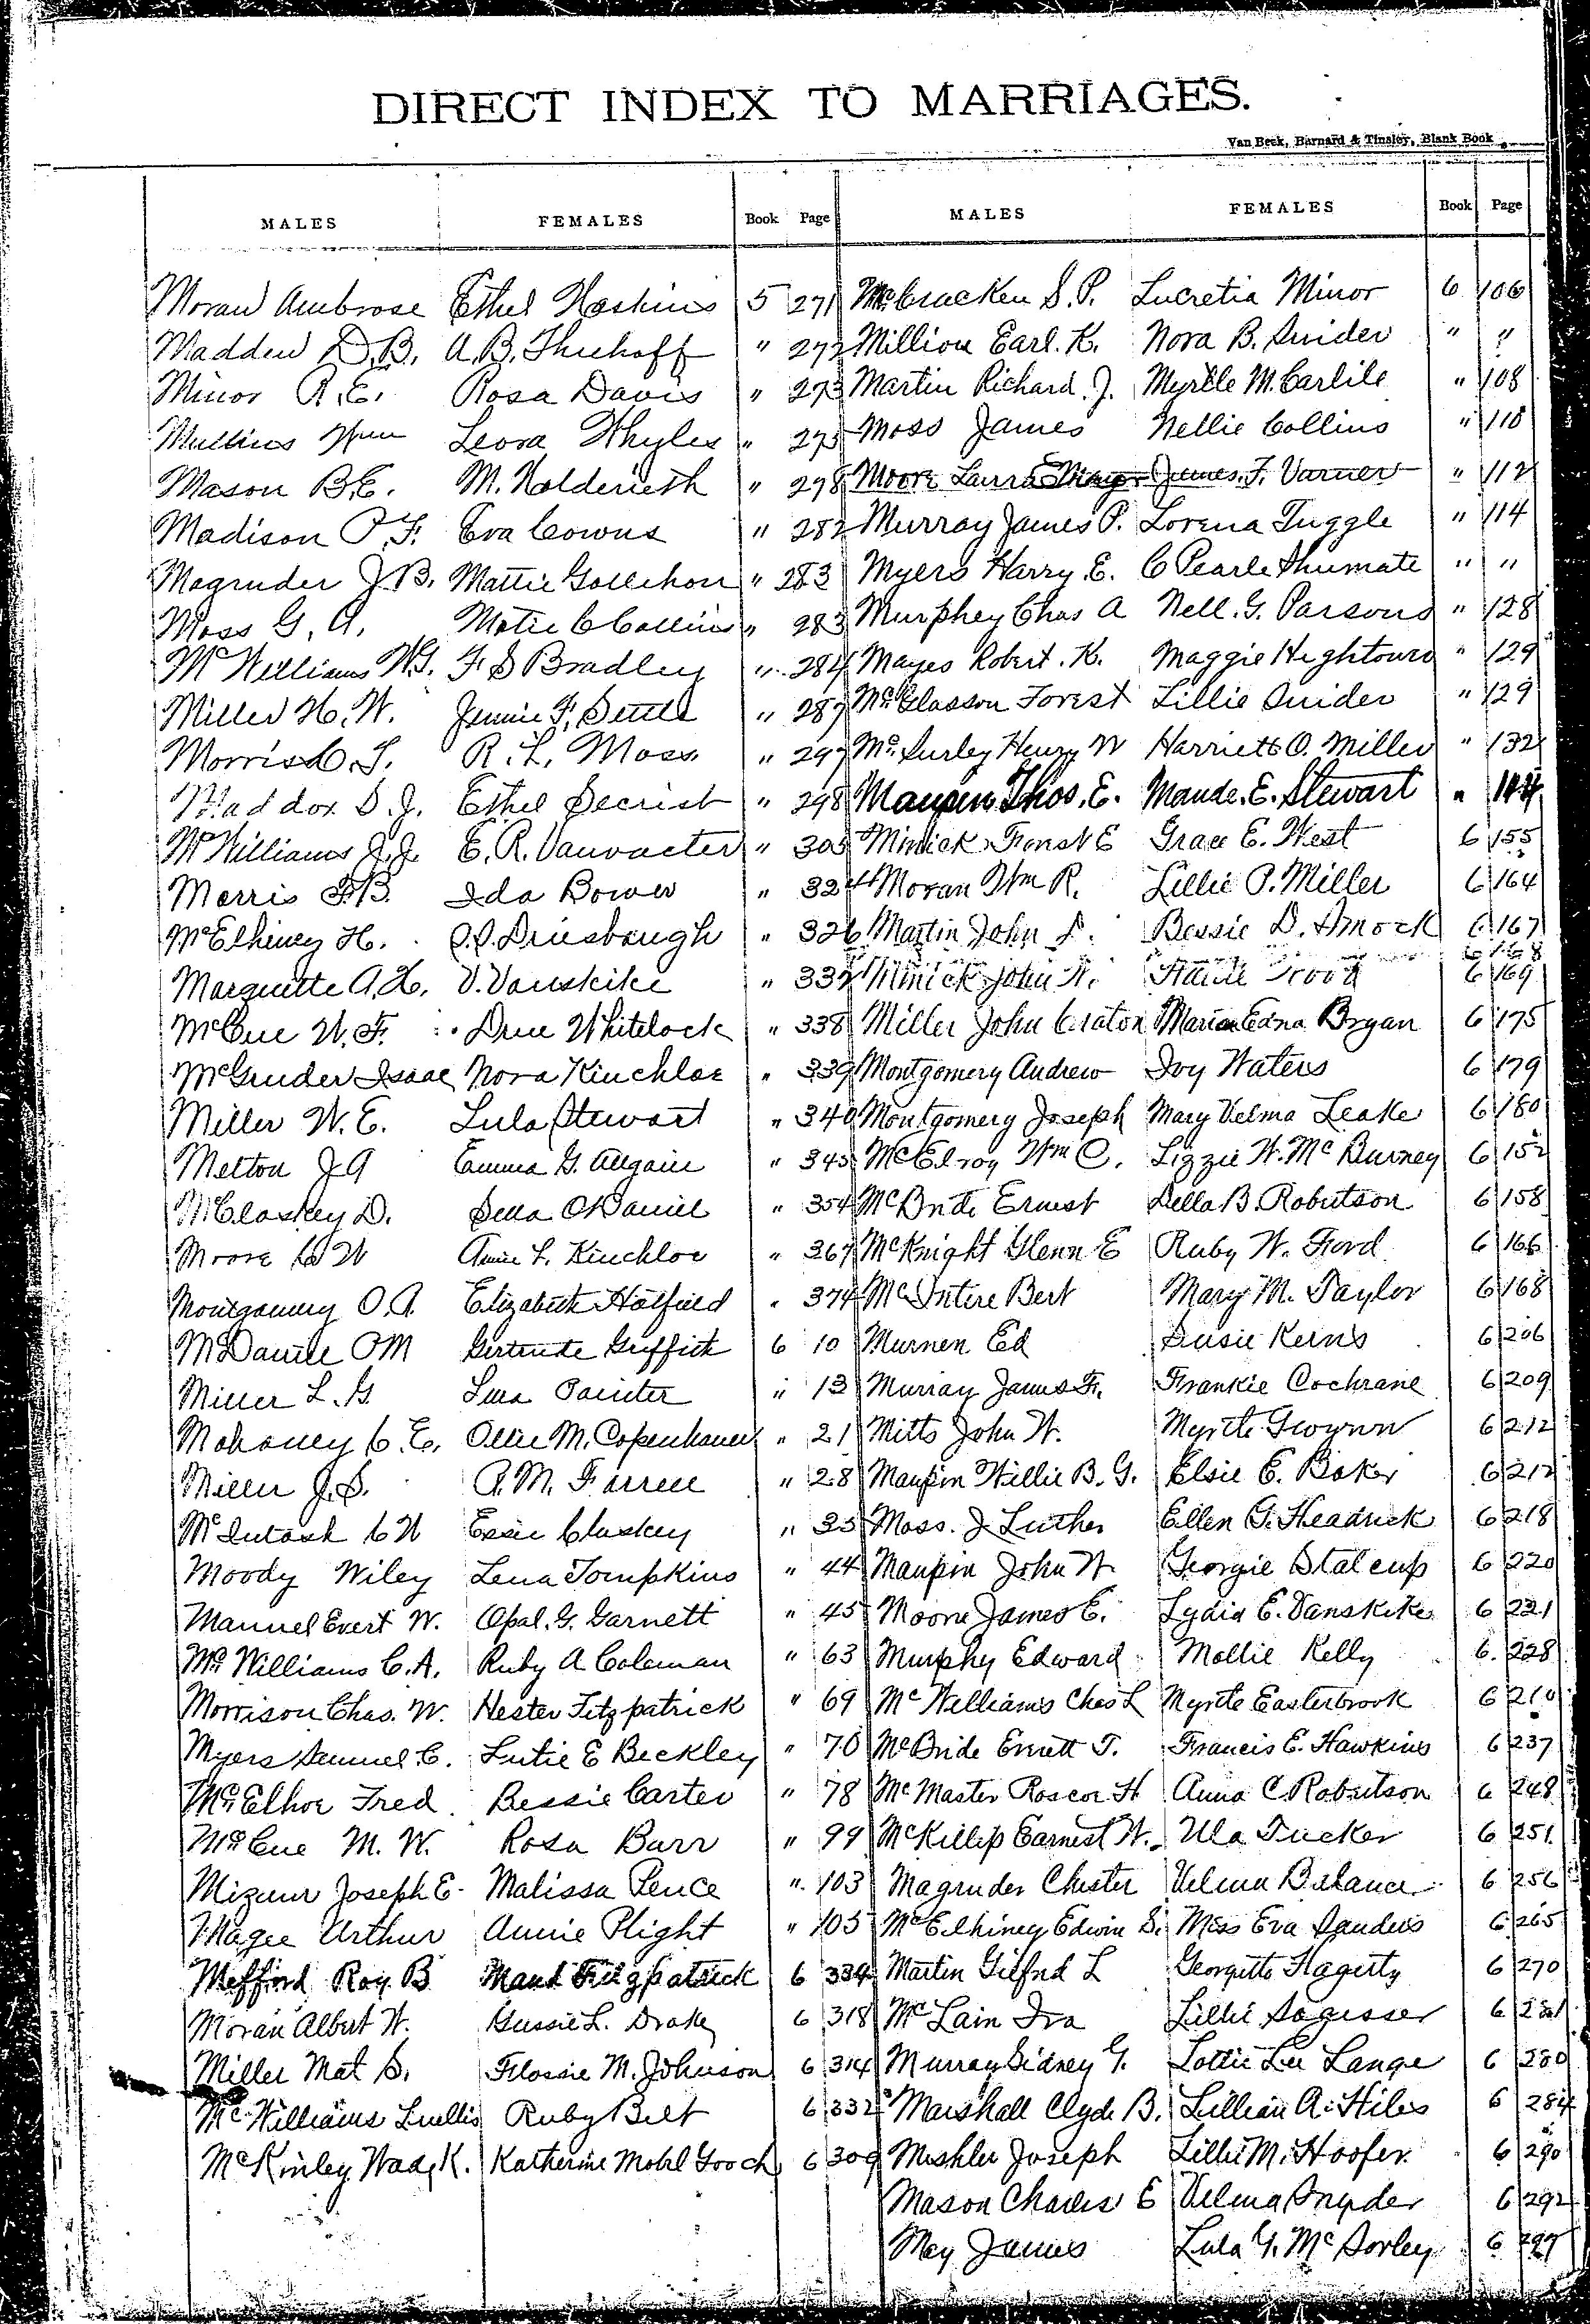 DIRECT INDEX TO MARRIAGES.
Van Beek, Barnard & Tinsley, Blank Book
MALES FEMALES Book Page MALES FEMALES Book Page
Moran Ambrose Ethel Hoskins 5 271 McCracken S. P. Lucretia Minor 6 106
Madden D. B. A. B. Thiehoff " 272 Million Earl. K. Nora B. Snider " "
Minor R. E. Rosa Davis " 273 Martin Richard. J. Myrtle M. Carlile " 108
Mullins Wm Leora Whyles " 275 Moss James Nellie Collins " 110
Mason B. E. M. Holderieth " 278 Moore Laura James. F. Varner " 112
Madison P. F. Eva Cowns " 282 Murray James P. Lorena Tuggle " 114
Magruder J. B. Mattie Gollihon " 283 Myers Harry. E. C Pearle Shumate " "
Moss G. A. Matie C Collins " 283 Murphey Chas A Nell. G. Parsons " 128
McWilliams W. G. F S Bradley " 284 Mayes Robert. K. Maggie Hightower " 129
Miller H. W. Jennie F. Settle " 287 McGlasson Forest Lillie Snider " 129
Morris C. T. R. L. Moss " 297 McSurley Henry W Harriett O. Miller " 132
Maddox S. J. Ethel Secrist " 298 Maupin Thos. E. Maude. E. Stewart " 144
McWilliams J. J. E. R. Vanvacter " 305 Minick Forest E Grace E. West 6 155
Morris F. B. Ida Bower " 324 Moran Wm R. Lillie P. Miller 6 164
McElhiney H. Driesbaugh " 326 Martin John Bessie D. Smock 6 167
6 168
Marquette A. H. V. Vanskike " 337 Minick John W. 6 169
McCue W. F. Drue Whitelock " 338 Miller John Craton Maria Edna Bryan 6 175
McGruder Isaac Nora Kinchloe " 339 Montgomery Andrew Ivy Waters 6 179
Miller W. E. Lula Stewart " 340 Montgomery Joseph Mary Velma Leake 6 180
Melton J A Emma G. Allgaier " 345 McElroy Wm C. Lizzie W. McBurney 6 152
McClaskey D. Della O'Daniel " 354 McBride Ernest Della B. Robertson 6 158
Moore C W Annie L. Kinchloe " 367 McKnight Glenn E Ruby W. Ford 6 166
Montgomery O. A. Elizabeth Hatfield " 374 McIntire Bert Mary M. Taylor 6 168
McDaniel O M Gertrude Griffith 6 10 Murnen Ed Susie Kerns 6 206
Miller L. G. Lura Painter " 13 Murray James F. Frankie Cochrane 6 209
Mahoney C. E. Ollie M. Copenhaver " 21 Mitts John W. Myrtle Gwynn 6 212
Miller J. S. A. M. Farrell " 28 Maupin Willie B. G. Elsie E. Baker 6 212
McIntosh C W Essie Claskey " 35 Moss. J Luther Ellen G. Headrick 6 218
Moody Wiley Lena Tompkins " 44 Maupin John W. Georgie Stalcup 6 220
Manuel Evert W. Opal. G. Garnett " 45 Moore James E. Lydia E. Vanskike 6 221
McWilliams C. A. Ruby A Coleman " 63 Murphy Edward Mollie Kelly 6 228
Morrison Chas. W. Hester Fitzpatrick " 69 McWilliams Chas L Myrtle Easterbrook 6 210
Myers Samuel C. Lutie E Beckley " 70 McBride Everett T. Francis E. Hawkins 6 237
McElhoe Fred Bessie Carter " 78 McMaster Roscoe H Anna C Robertson 6 248
McCue M. W. Rosa Barr " 99 McKillip Earnest W. Ula Tucker 6 251
Mizeur Joseph E. Malissa Pence " 103 Magruder Chester Velma Balance 6 256
Magee Arthur Annie Plight " 105 McElhiney Edwin S. Miss Eva Sanders 6 265
Mefford Roy B Maud Fitzpatrick 6 334 Martin Gilfred L Georgette Hagerty 6 270
Moran Albert W. Gussie L. Drake 6 318 McLain Ira Lillie Sagesser 6 281
Miller Mat S. Flossie M. Johnson 6 314 Murray Sidney G. Lottie Lee Lange 6 280
McWilliams Luellis Ruby Belt 6 332 Marshall Clyde B. Lillian A. Hiles 6 284
McKinley Wade K. Katherine Mabel Gooch 6 309 Mishler Joseph Lillie M. Hoofer 6 290
Mason Charles E Velma Snyder 6 292
May James Lula G. McSorley 6 297